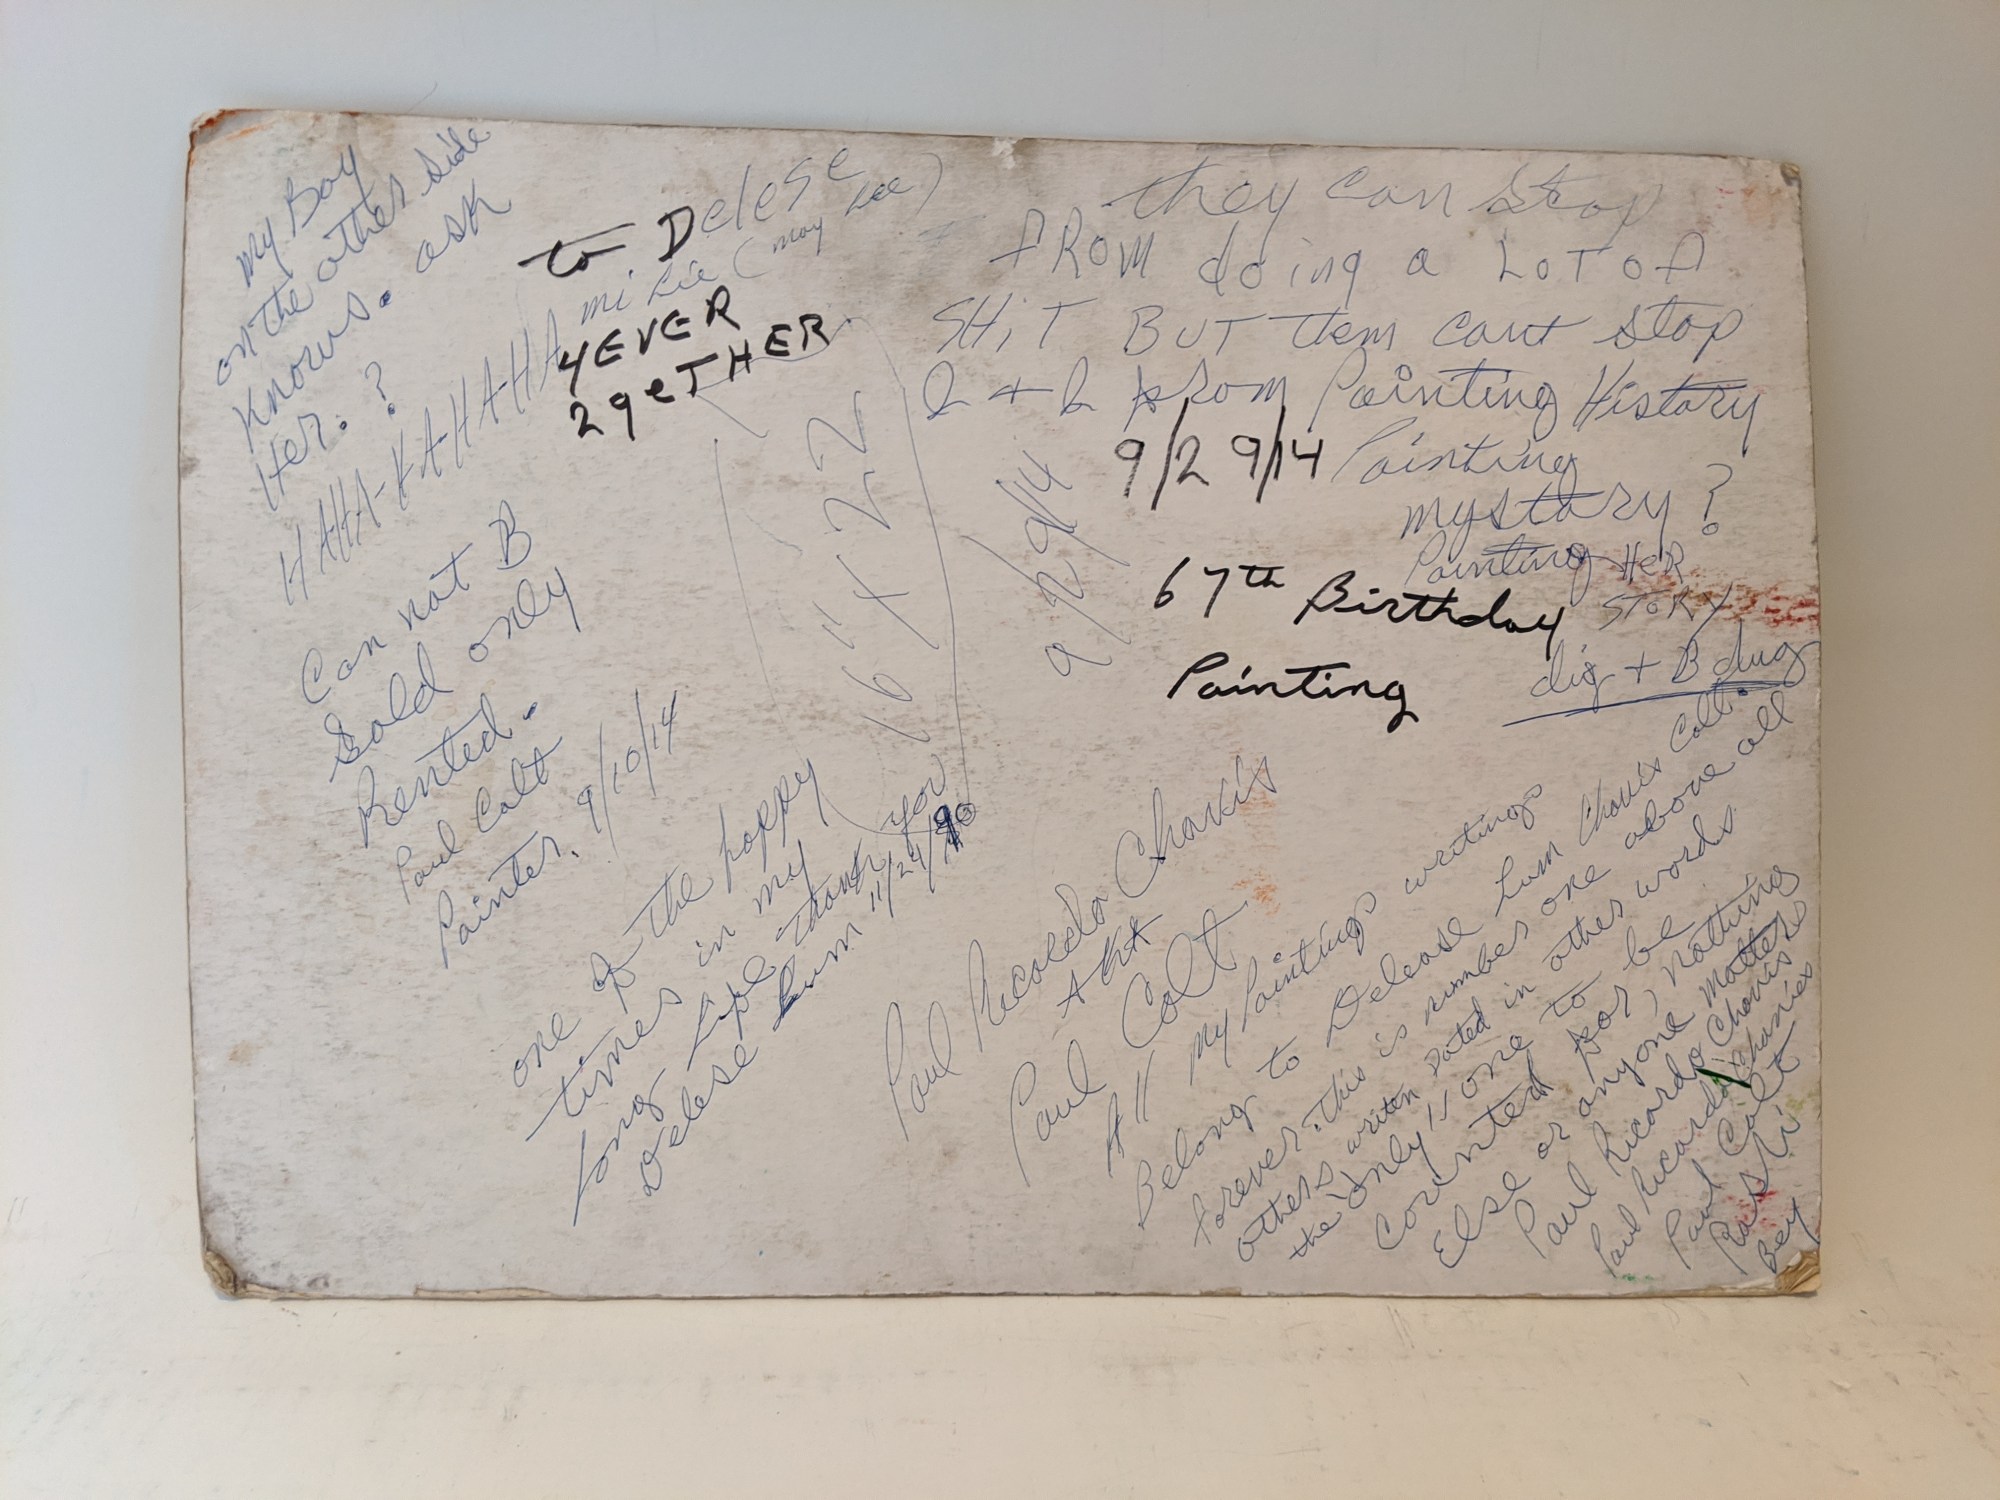 my Boy
on the other side
Knows. ask
Her. ?
HAHA-HA-HA-HAHA
to Delese
mikie (may kee)
4EVER
2geTHER
they can stop
FROM doing a LOT of
SHiT BUT them cant stop
from Painting History
9/29/14 Painting
mystary ?
Painting HER
STORY
dig + B dug
67th Birthday
Painting
9/29/14
16" x 22
Can not B
Sold only
Rented.
Paul Colt
Painter. 9/10/14
one of the happy
times in my
long life thank you
Delese Lum 11/24/
Paul Ricardo Chavis
AKA
Paul Colt
All my Paintings writings
Belong to Delease Lum Chavis Colt.
forever. this is number one above all
others writen Dated in other words
the only "one to be
counted for, nothing
Else or anyone matters
Paul Ricardo Chavis
Paul Ricardo Chavies
Paul Colt
Rasti
Bey